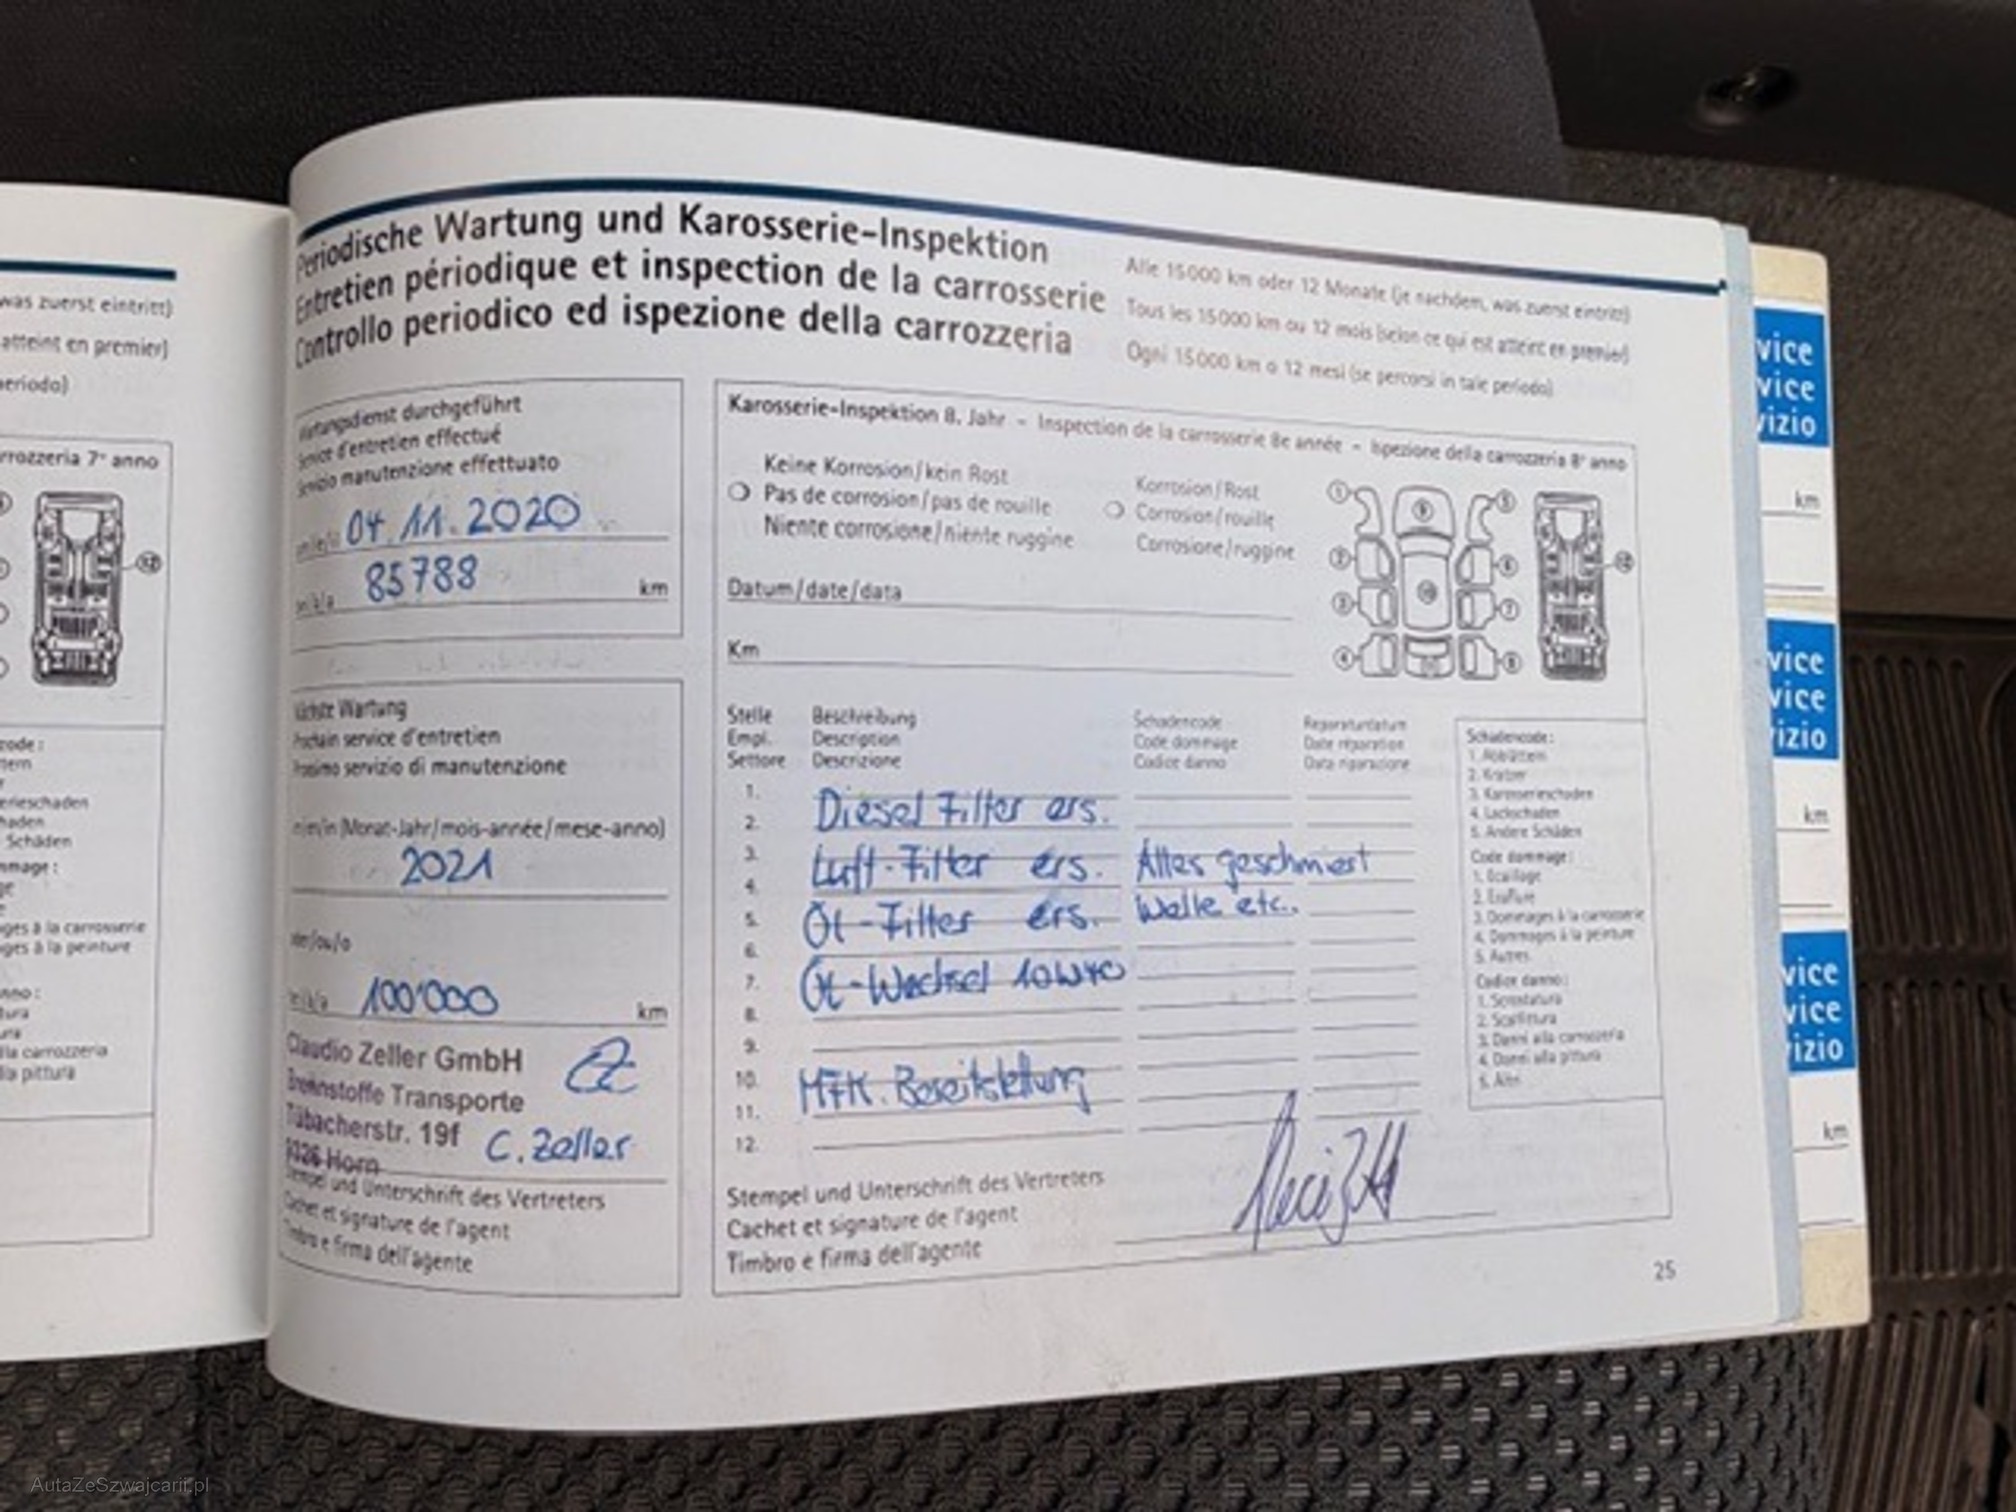 was zuerst eintritt)
atteint en premier)
periodo)
rrozzeria 7° anno
12
code:
tern
erieschaden
haden
Schäden
mmage:
ge
ges à la carrosserie
ges à la peinture
nno:
tura
ura
lla carrozzeria
lla pittura
Periodische Wartung und Karosserie-Inspektion
Entretien périodique et inspection de la carrosserie
Controllo periodico ed ispezione della carrozzeria
Alle 15000 km oder 12 Monate (je nachdem, was zuerst eintritt)
Tous les 15000 km ou 12 mois (selon ce qui est atteint en premier)
Ogni 15000 km o 12 mesi (se percorsi in tale periodo)
Wartungsdienst durchgeführt
Service d'entretien effectué
Servizio manutenzione effettuato
04.11.2020
85788 km
Nächste Wartung
Prochain service d'entretien
Prossimo servizio di manutenzione
im/en/in (Monat-Jahr/mois-année/mese-anno)
2021
oder/ou/o
bei/à/a 100'000 km
Claudio Zeller GmbH
Brennstoffe Transporte
Tübacherstr. 19f
9326 Horn
CZ
C. Zeller
Stempel und Unterschrift des Vertreters
Cachet et signature de l'agent
Timbro e firma dell'agente
Karosserie-Inspektion 8. Jahr - Inspection de la carrosserie 8e année - Ispezione della carrozzeria 8° anno
Keine Korrosion/kein Rost
Pas de corrosion/pas de rouille
Niente corrosione/niente ruggine
Korrosion/Rost
Corrosion/rouille
Corrosione/ruggine
1 2 3 4 5 6 7 8 9 10
Datum/date/data
Km
Stelle Beschreibung Schadencode Reparaturdatum
Empl. Description Code dommage Date réparation
Settore Descrizione Codice danno Data riparazione
1.
2. Diesel Filter ers.
3.
4. Luft-Filter ers. Alles geschmiert
5. Öl-Filter ers. Welle etc.
6.
7. Öl-Wechsel 10W40
8.
9.
10. MFK. Bereitstellung
11.
12.
Schadencode:
1. Abblättern
2. Kratzer
3. Karosserieschaden
4. Lackschaden
5. Andere Schäden
Code dommage:
1. Ecaillage
2. Eraflure
3. Dommages à la carrosserie
4. Dommages à la peinture
5. Autres
Codice danno:
1. Scrostatura
2. Scalfittura
3. Danni alla carrozzeria
4. Danni alla pittura
5. Altri
Stempel und Unterschrift des Vertreters
Cachet et signature de l'agent
Timbro e firma dell'agente
25
vice
vice
vizio
km
vice
vice
vizio
km
vice
vice
vizio
km
AutaZeSzwajcarii.pl